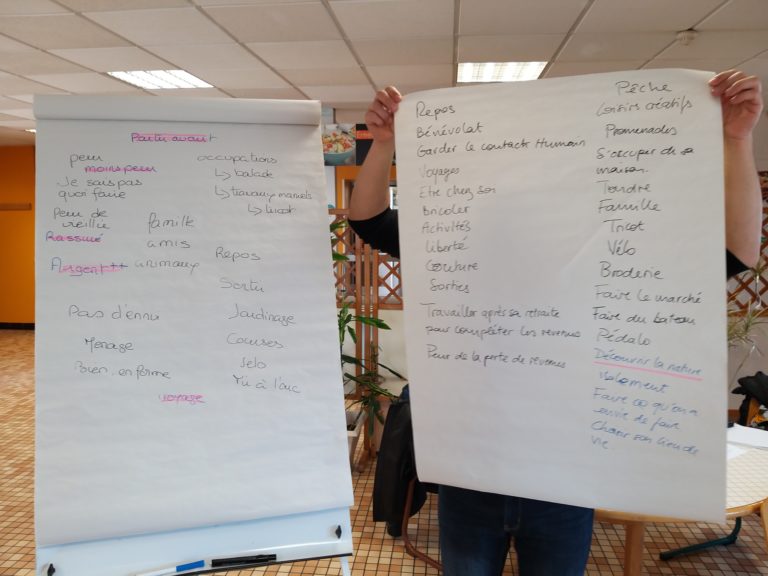 Partir avant
peur
moins peur
Je sais pas
quoi faire
Peur de
vieillir
Rassuré
Argent ++
famille
amis
animaux
Pas d'ennui
Ménage
Bien en forme
voyage
occupations
↳ balade
↳ travaux manuels
↳ tricot
Repos
Sortir
Jardinage
Courses
Vélo
Tir à l'arc
Repos
Bénévolat
Garder le contacts Humain
Voyages
Etre chez soi
bricoler
Activités
liberté
Couture
Sorties
Travailler après sa retraite
pour compléter les revenus
Peur de la perte de revenus
Pêche
Loisirs créatifs
Promenades
S'occuper de sa
maison.
Tondre
Famille
Tricot
Vélo
Broderie
Faire le marché
Faire du bateau
Pédalo
Découvrir la nature
Faire ce qu'on a
envie de faire
Choisir son lieu de
vie